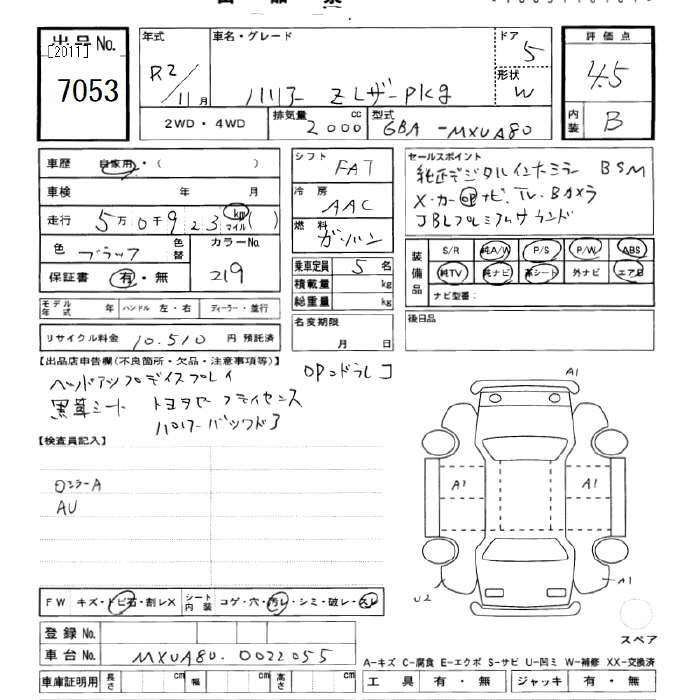 出品No.
[2011]
7053
年式
R2/11月
車名・グレード
ハリアー Zレザーpkg
ドア
5
形状
W
2WD・4WD
排気量
2000 cc
型式
6BA-MXUA80
評価点
4.5
内装
B
車歴 自家用・( )
車検 年 月
走行 5万0千923 km マイル ( )
色 ブラック 色替
カラーNo.
219
保証書 有・無
シフト FAT
冷房 AAC
燃料 ガソリン
乗車定員 5 名
積載量 kg
総重量 kg
名変期限
月 日
モデル年式 年 ハンドル 左・右 ディーラー・並行
リサイクル料金 10.510 円 預託済
セールスポイント
純正デジタルインナーミラー BSM
メーカーOPナビ、TV、Bカメラ
JBLプレミアムサウンド
装備品
S/R 純A/W P/S P/W ABS
純TV 純ナビ 革シート 外ナビ エアB
ナビ型番:
後日品
【出品店申告欄(不良箇所・欠品・注意事項等)】
ヘッドアップディスプレイ OPコドラレコ
黒革シート トヨタセーフティセンス
ハンズフリーパワーバックドア
【検査員記入】
ロシラーA
AU
A1
A1
A1
A1
U2
スペア
FW キズ・トビ石・割レX シート内装 コゲ・穴・汚レ・シミ・破レ・スレ
登録No.
車台No. MXUA80-0022055
車庫証明用 長さ cm 幅 cm 高さ cm
A-キズ C-腐食 E-エクボ S-サビ U-凹ミ W-補修 XX-交換済
工具 有・無 ジャッキ 有・無